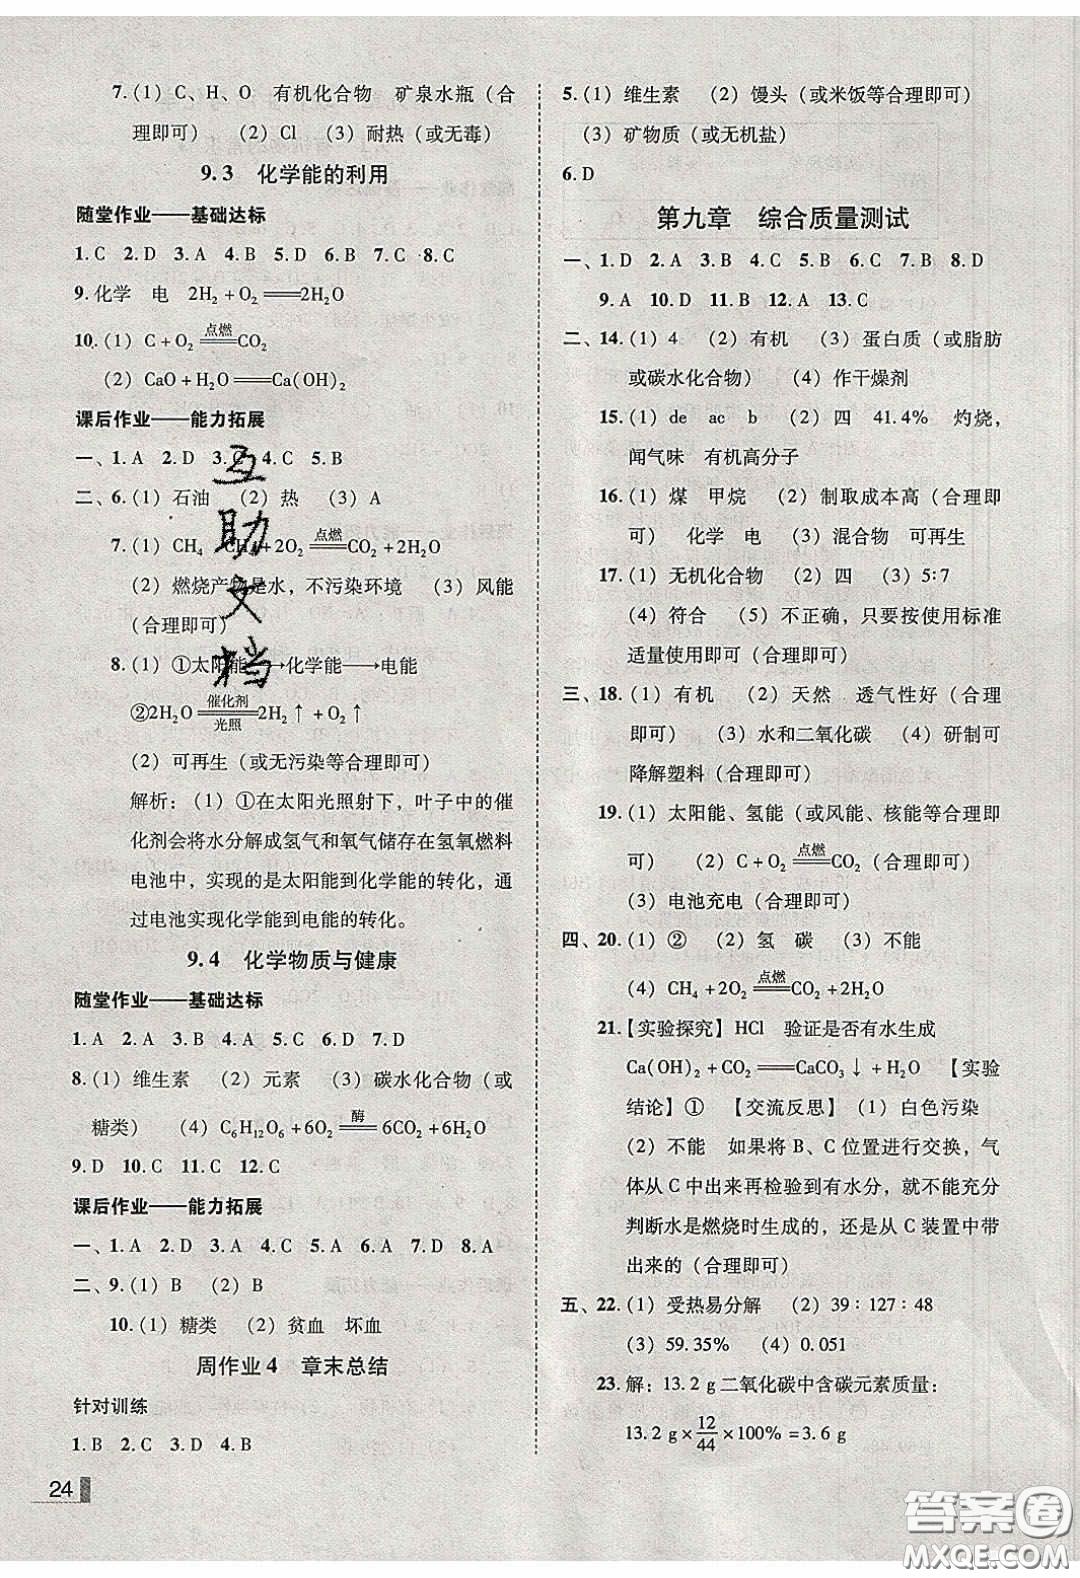 7. (1) C、H、O　有机化合物　矿泉水瓶（合
理即可）　(2) Cl　(3) 耐热（或无毒）
9.3　化学能的利用
随堂作业——基础达标
1. C　2. D　3. A　4. B　5. D　6. B　7. C　8. C
9. 化学　电　2H₂+O₂══2H₂O
10. (1) C+O₂ ══点燃══ CO₂
(2) CaO+H₂O══Ca(OH)₂
课后作业——能力拓展
一、1. A　2. D　3. C　4. C　5. B
二、6. (1) 石油　(2) 热　(3) A
7. (1) CH₄　CH₄+2O₂ ══点燃══ CO₂+2H₂O
(2) 燃烧产物是水，不污染环境　(3) 风能
（合理即可）
8. (1) ①太阳能→化学能→电能
②2H₂O ══催化剂/光照══ 2H₂↑+O₂↑
(2) 可再生（或无污染等合理即可）
解析：(1) ①在太阳光照射下，叶子中的催
化剂会将水分解成氢气和氧气储存在氢氧燃料
电池中，实现的是太阳能到化学能的转化，通
过电池实现化学能到电能的转化。
9.4　化学物质与健康
随堂作业——基础达标
1. A　2. A　3. B　4. C　5. D　6. D　7. D
8. (1) 维生素　(2) 元素　(3) 碳水化合物（或
糖类）　(4) C₆H₁₂O₆+6O₂ ══酶══ 6CO₂+6H₂O
9. D　10. C　11. C　12. C
课后作业——能力拓展
一、1. A　2. D　3. A　4. D　5. A　6. A　7. D　8. A
二、9. (1) B　(2) B
10. (1) 糖类　(2) 贫血　坏血
周作业 4　章末总结
针对训练
1. B　2. C　3. D　4. B
24
5. (1) 维生素　(2) 馒头（或米饭等合理即可）
(3) 矿物质（或无机盐）
6. D
第九章　综合质量测试
一、1. D　2. A　3. B　4. C　5. C　6. C　7. B　8. D
9. A　10. D　11. B　12. A　13. C
二、14. (1) 4　(2) 有机　(3) 蛋白质（或脂肪
或碳水化合物）　(4) 作干燥剂
15. (1) de　ac　b　(2) 四　41.4%　灼烧，
闻气味　有机高分子
16. (1) 煤　甲烷　(2) 制取成本高（合理即
可）　化学　电　(3) 混合物　可再生
17. (1) 无机化合物　(2) 四　(3) 5∶7
(4) 符合　(5) 不正确，只要按使用标准
适量使用即可（合理即可）
三、18. (1) 有机　(2) 天然　透气性好（合理
即可）　(3) 水和二氧化碳　(4) 研制可
降解塑料（合理即可）
19. (1) 太阳能、氢能（或风能、核能等合理即
可）　(2) C+O₂ ══点燃══ CO₂（合理即可）
(3) 电池充电（合理即可）
四、20. (1) ②　(2) 氢　碳　(3) 不能
(4) CH₄+2O₂ ══点燃══ CO₂+2H₂O
21. 【实验探究】HCl　验证是否有水生成
Ca(OH)₂+CO₂══CaCO₃↓+H₂O　【实验
结论】①　【交流反思】(1) 白色污染
(2) 不能　如果将 B、C 位置进行交换，气
体从 C 中出来再检验到有水分，就不能充分
判断水是燃烧时生成的，还是从 C 装置中带
出来的（合理即可）
五、22. (1) 受热易分解　(2) 39∶127∶48
(3) 59.35%　(4) 0.051
23. 解：13.2 g 二氧化碳中含碳元素质量：
13.2 g×12/44×100%=3.6 g
互助文档
答案圈
MXQE.COM